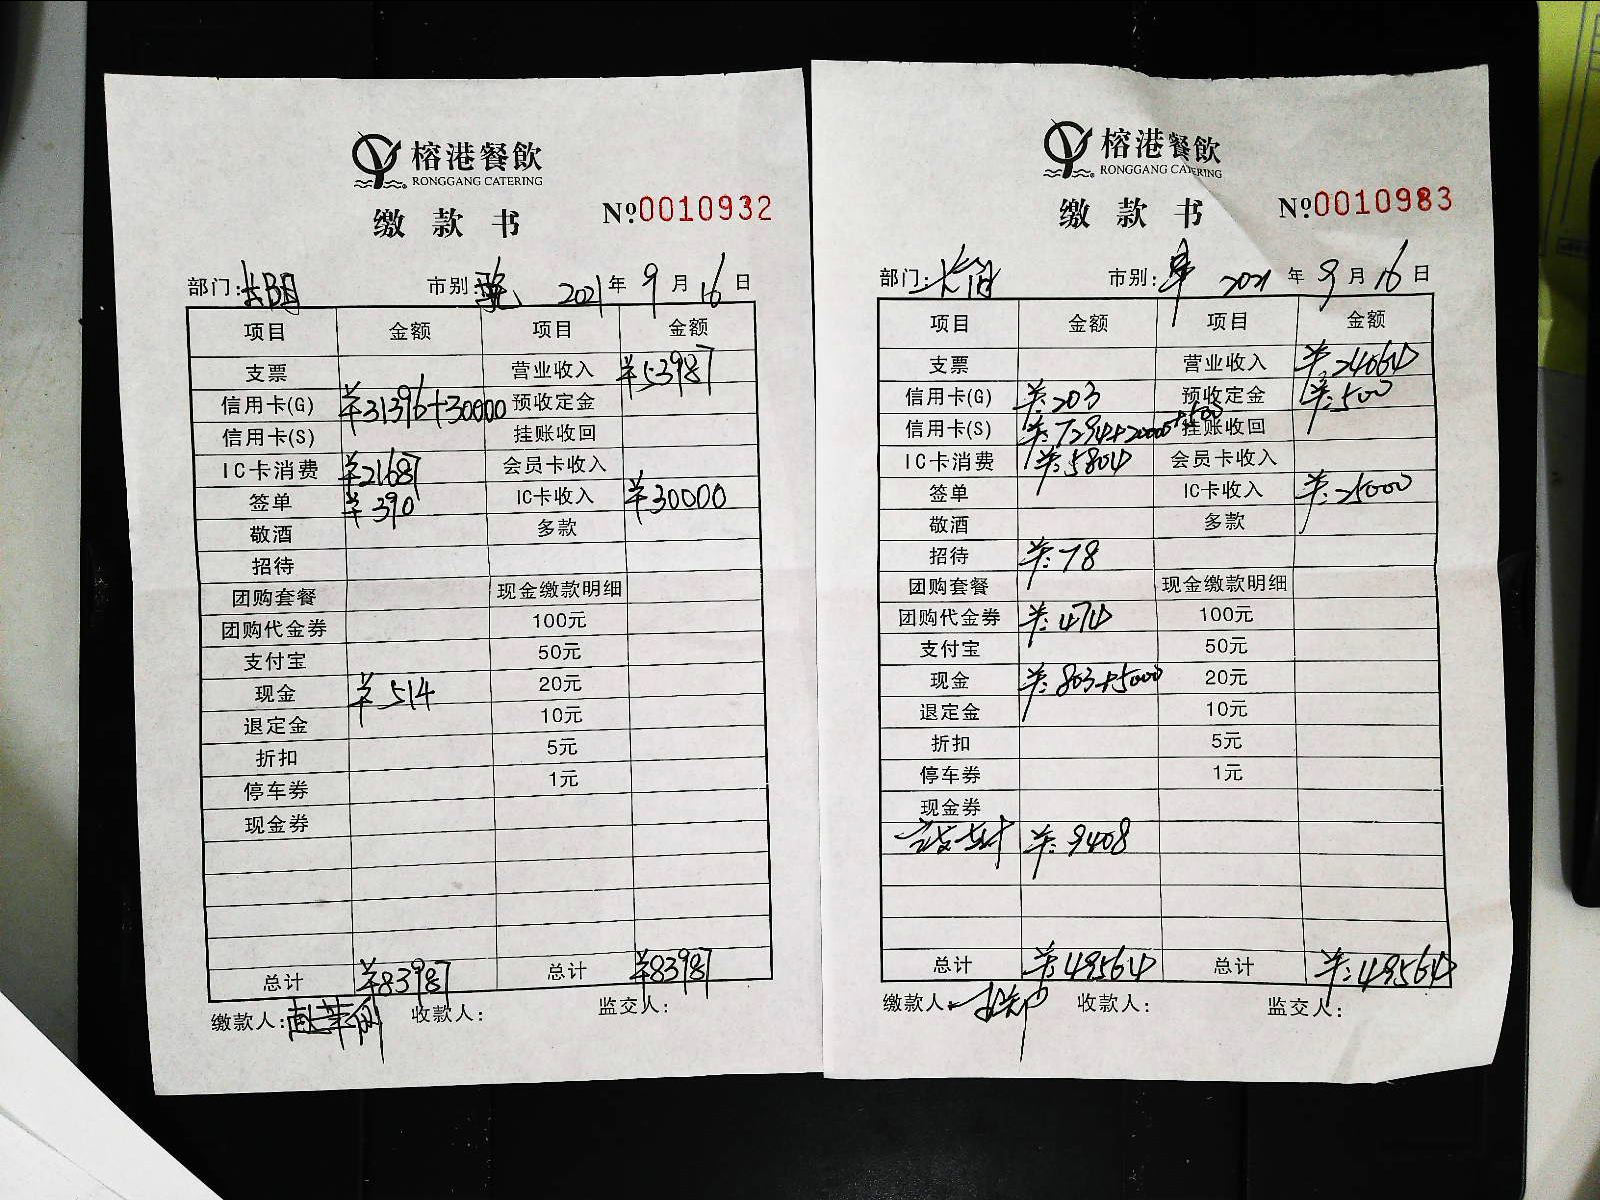 榕港餐飲
RONGGANG CATERING
缴款书 №0010932
部门: 市别: 2021年9月16日
项目 金额 项目 金额
支票 营业收入 ¥53987
信用卡(G) ¥31396+30000 预收定金
信用卡(S) 挂账收回
IC卡消费 ¥21687 会员卡收入
签单 ¥390 IC卡收入 ¥30000
敬酒 多款
招待
团购套餐 现金缴款明细
团购代金券 100元
支付宝 50元
现金 ¥514 20元
退定金 10元
折扣 5元
停车券 1元
现金券
总计 ¥83987 总计 ¥83987
缴款人: 收款人: 监交人:
榕港餐飲
RONGGANG CATERING
缴款书 №0010983
部门: 市别:早 2021年9月16日
项目 金额 项目 金额
支票 营业收入 ¥:24064
信用卡(G) ¥:203 预收定金 ¥:500
信用卡(S) ¥:7294+20000+500 挂账收回
IC卡消费 ¥:5804 会员卡收入
签单 IC卡收入 ¥:25000
敬酒 多款
招待 ¥:78
团购套餐 现金缴款明细
团购代金券 ¥:474 100元
支付宝 50元
现金 ¥:803+5000 20元
退定金 10元
折扣 5元
停车券 1元
现金券
¥:9408
总计 ¥:49564 总计 ¥:49564
缴款人: 收款人: 监交人: